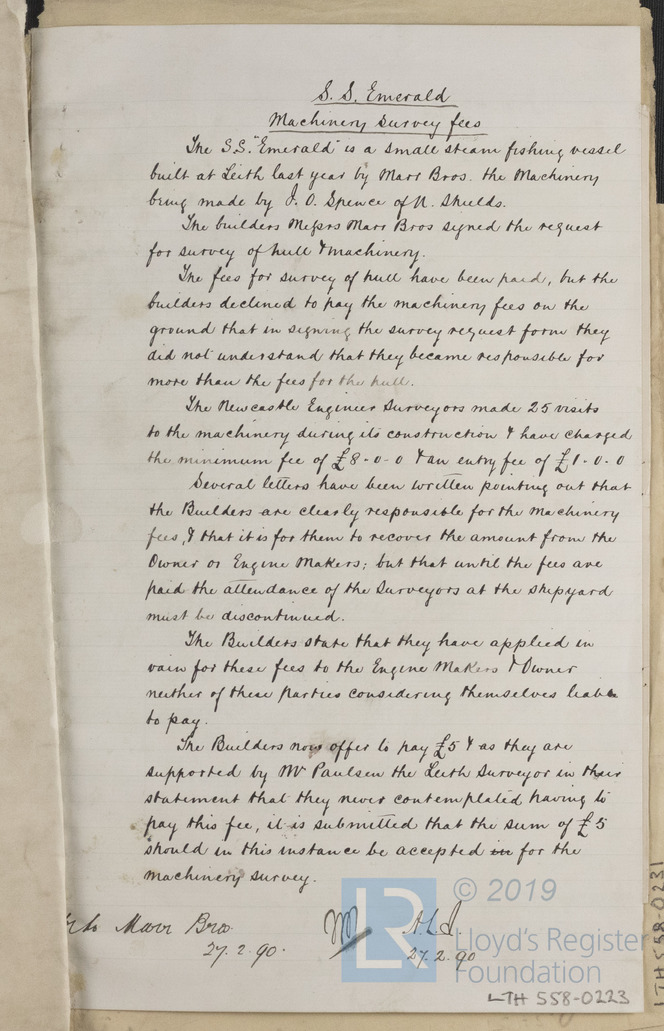 S. S. Emerald
Machinery Survey fees
The S.S. "Emerald" is a small steam fishing vessel
built at Leith last year by Marr Bros. the Machinery
being made by J. O. Spence of N. Shields.
The builders Messrs Marr Bros signed the request
for survey of hull & machinery.
The fees for survey of hull have been paid, but the
builders declined to pay the machinery fees on the
ground that in signing the survey request form they
did not understand that they became responsible for
more than the fees for the hull.
The Newcastle Engineer Surveyors made 25 visits
to the machinery during its construction & have charged
the minimum fee of £8-0-0 & an entry fee of £1-0-0
Several letters have been written pointing out that
the Builders are clearly responsible for the machinery
fees, & that it is for them to recover the amount from the
Owner or Engine Makers; but that until the fees are
paid the attendance of the Surveyors at the shipyard
must be discontinued.
The Builders state that they have applied in
vain for these fees to the Engine Makers & Owner
neither of these parties considering themselves liable
to pay.
The Builders now offer to pay £5 & as they are
supported by Mr Paulsen the Leith Surveyor in their
statement that they never contemplated having to
pay this fee, it is submitted that the sum of £5
should in this instance be accepted in for the
machinery survey.
to Marr Bros.
27.2.90.
27.2.90
© 2019
LR
Lloyd's Register
Foundation
LTH 558-0223
LTH 558-0231